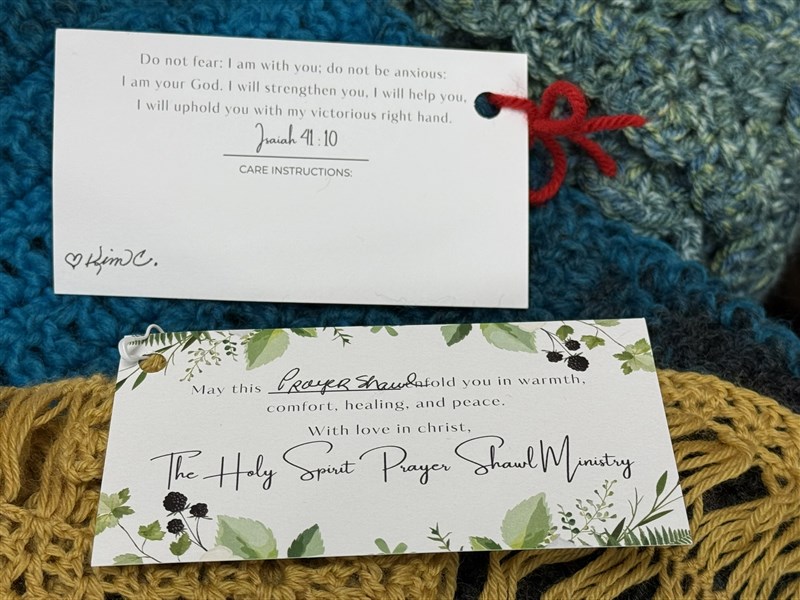 Do not fear: I am with you; do not be anxious:
I am your God. I will strengthen you, I will help you,
I will uphold you with my victorious right hand.
Isaiah 41:10
CARE INSTRUCTIONS:
♡ Kim C.
May this Prayer Shawl enfold you in warmth,
comfort, healing, and peace.
With love in christ,
The Holy Spirit Prayer Shawl Ministry